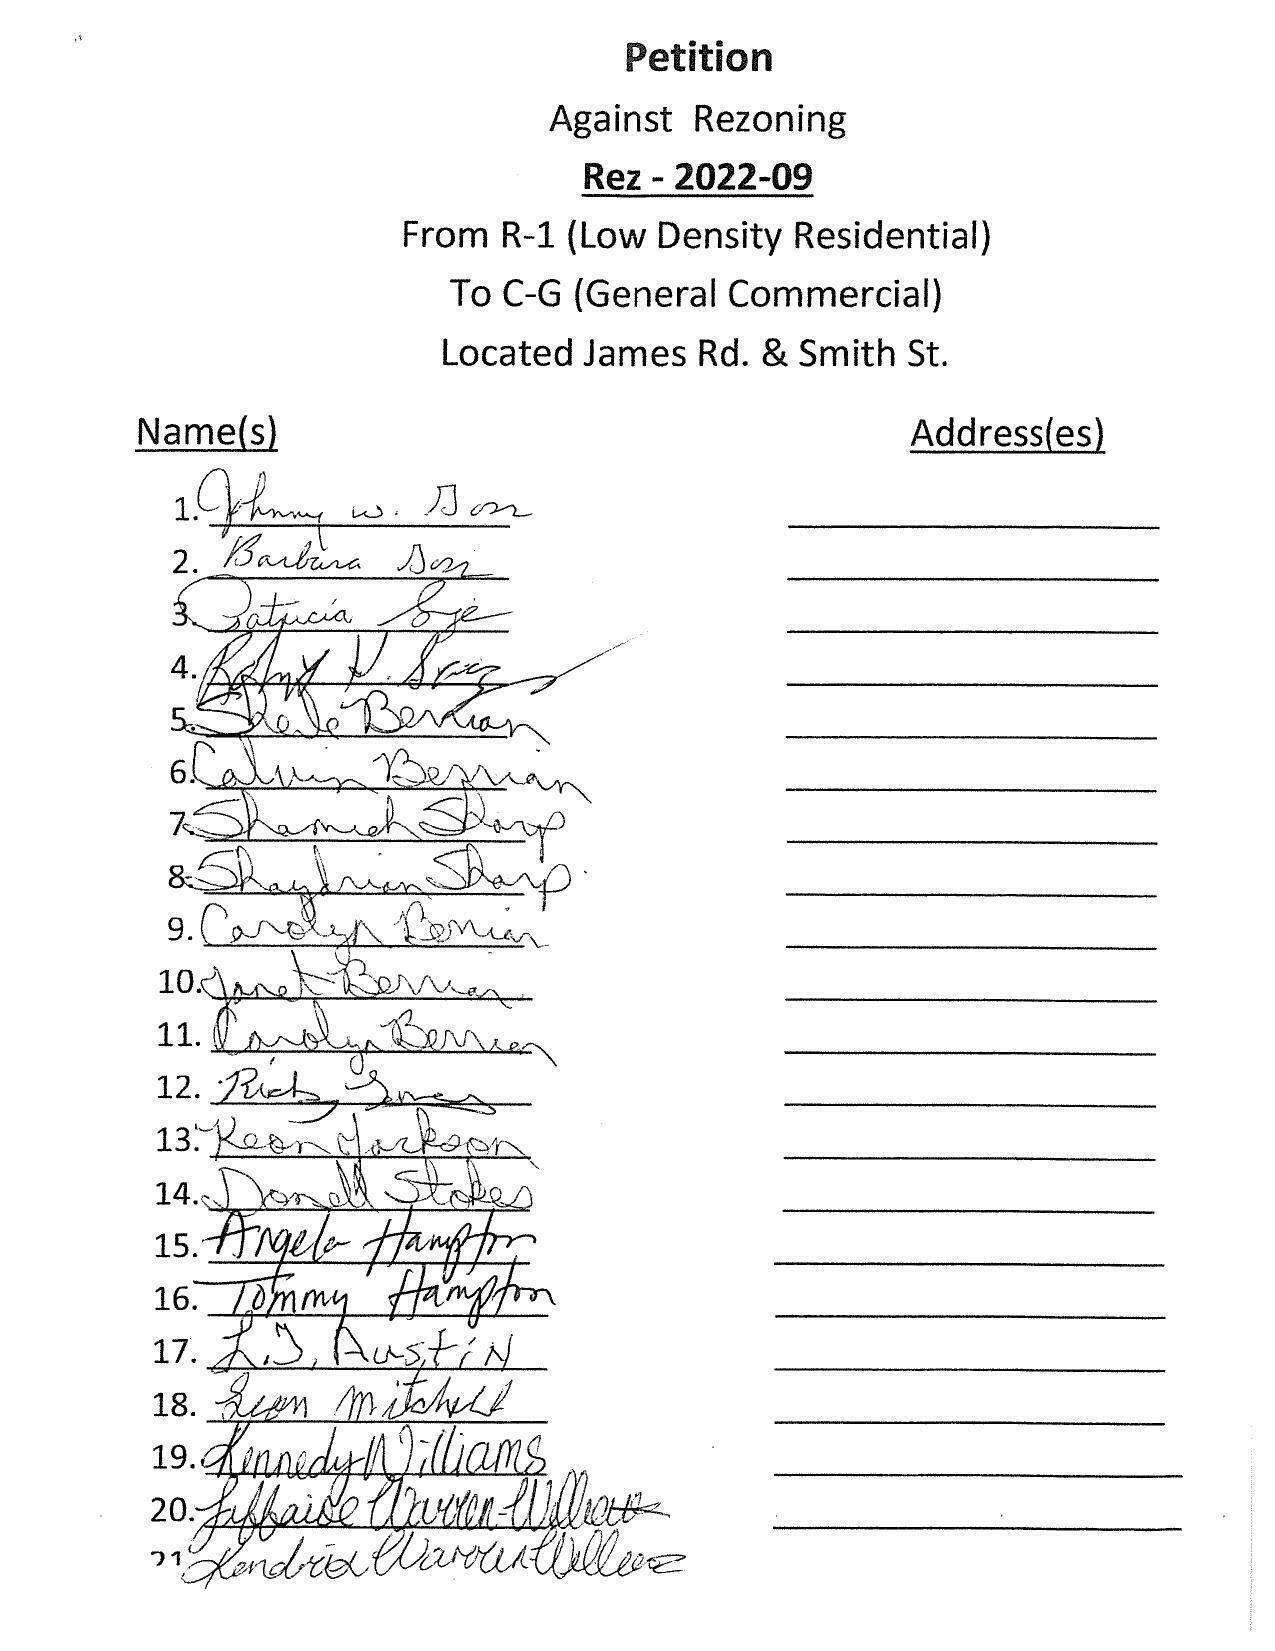 Petition
Against Rezoning
Rez - 2022-09
From R-1 (Low Density Residential)
To C-G (General Commercial)
Located James Rd. & Smith St.
Name(s) Address(es)
1. Johnny W.
2. Barbara
3. Patricia
4.
5. Berrian
6. Calvin Berrian
7. Shamiah Sharp
8. Shaydrian Sharp
9. Carolyn Berrian
10. Janet Berrian
11. Carolyn Berrian
12. Rick
13. Keon Jackson
14. Donell Stokes
15. Angela Hampton
16. Tommy Hampton
17. L.J. Austin
18. Leon Mitchell
19. Kennedy Williams
20. Warren-Williams
21 Kendrix Warren-Williams